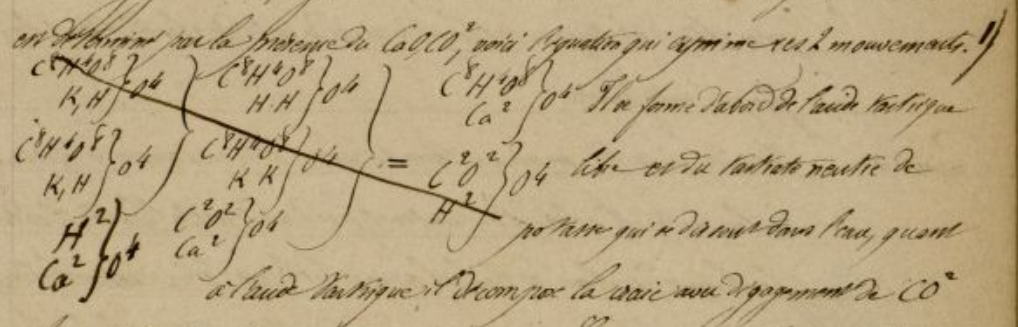 est déterminé par la présence du CaO,CO², voici l'équation qui exprime ces 2 mouvements. 1)
C⁸H⁴O⁸ } O4 ) C⁸H⁴O⁸ } O4 ) C⁸H⁴O⁸ } O4 Il se forme d'abord de l'acide tartrique
K,H H.H Ca²
C⁸H⁴O⁸ } O4 C⁸H⁴O⁸ } O4 = C²O² } O4 libre et du tartrate neutre de
K,H K K H²
H² } O4 C²O² } O4 potasse qui se dissout dans l'eau, quant
Ca² Ca²
à l'acide tartrique il décompose la craie avec dégagement de CO²